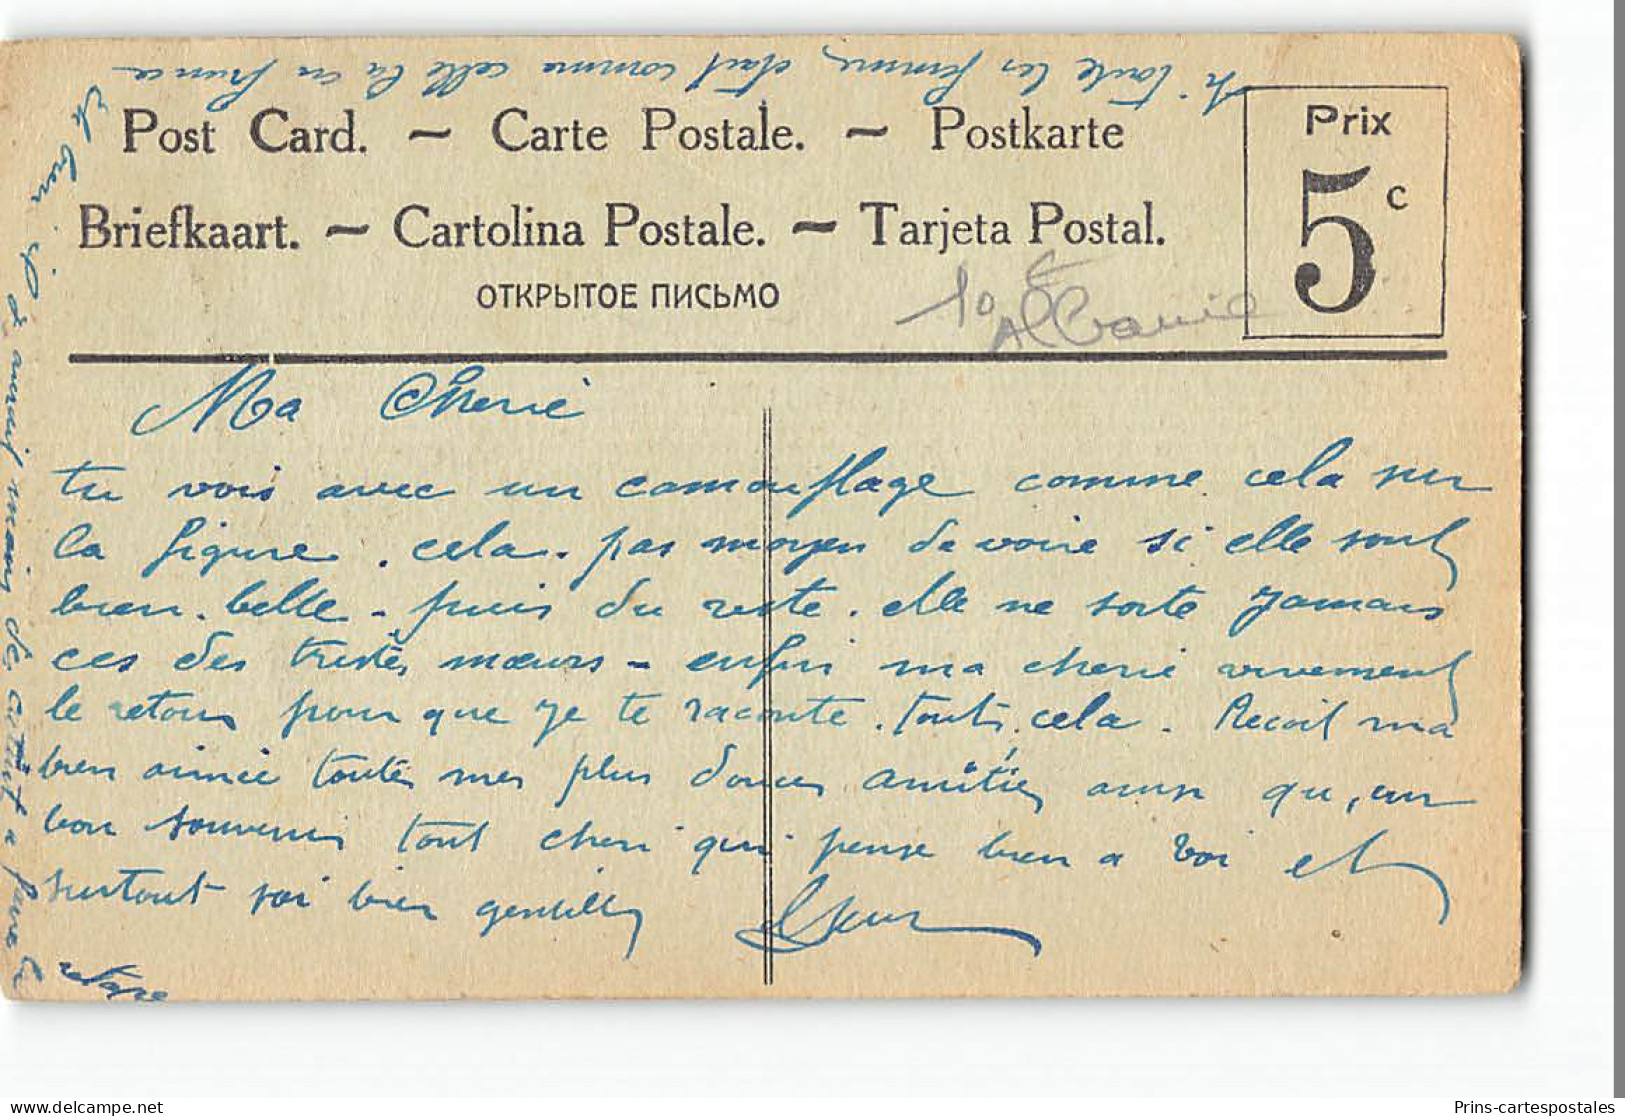 si toute les femme, etait comme celle la en france
et bien. il y aurait moin de
Post Card. ~ Carte Postale. ~ Postkarte
Briefkaart. ~ Cartolina Postale. ~ Tarjeta Postal.
ОТКРЫТОЕ ПИСЬМО
Prix
5 c
10 €
Albanie
Ma Cherie
tu vois avec un camouflage comme cela sur
la figure. cela. pas moyen de voire si elle sont
bien. belle - puis du reste. elle ne sorte Jamais
ces des tristes mœurs - enfin ma cherie vivement
le retour pour que je te raconte. touts cela. Recoit ma
bien aimée toutes mes plus douces amitiés ainsi qu, un
bon souvenir tout cheri qui pense bien a toi et
surtout soi bien gentille
delcampe.net
Prins-cartespostales